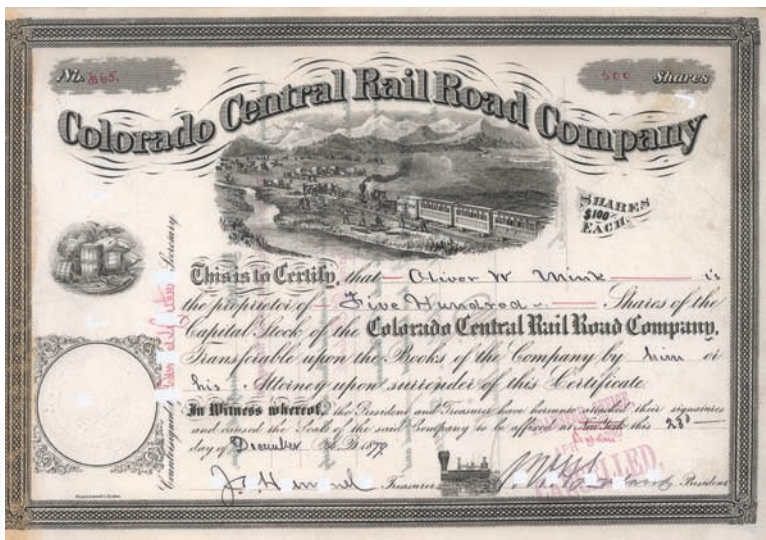 No. 865.
500 Shares
Colorado Central Rail Road Company
SHARES
$100
EACH.
This is to Certify, that Oliver W Mink is
the proprietor of Five Hundred Shares of the
Capital Stock of the Colorado Central Rail Road Company,
Transferable upon the Books of the Company by him or
his Attorney upon surrender of this Certificate.
In Witness whereof, the President and Treasurer have hereunto attached their signatures
and caused the Seal of the said Company to be affixed at New York this 23d
day of December A.D. 1879
Treasurer
President
Countersigned
Secretary
CANCELLED.